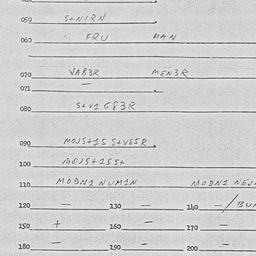 050 S+NIRN
060 FRU MAN
070 VAB3R MEN3R
071 — .
080 S+V1 G83R
090 MOJS+1S S+VESR .
100 MOJS+1SS+
110 MODN1 NUM1N MODN1 NEJ
120 — 130 — 140 — / BU
150 + 160 — 170 —
180 — 190 — 200 —